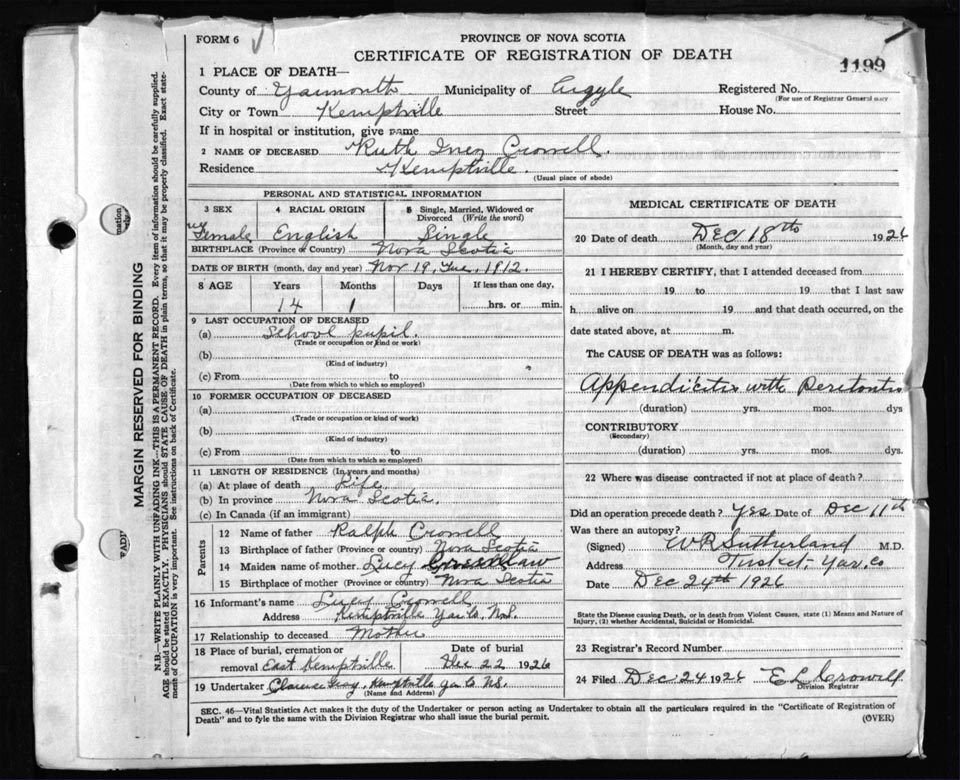 FORM 6
PROVINCE OF NOVA SCOTIA
CERTIFICATE OF REGISTRATION OF DEATH
1199
1 PLACE OF DEATH—
County of Yarmouth Municipality of Argyle Registered No.
(For use of Registrar General only)
City or Town Kemptville Street House No.
If in hospital or institution, give name
2 NAME OF DECEASED Ruth Inez Crowell.
Residence Kemptville.
(Usual place of abode)
PERSONAL AND STATISTICAL INFORMATION
3 SEX 4 RACIAL ORIGIN 5 Single, Married, Widowed or Divorced (Write the word)
Female English Single
BIRTHPLACE (Province or Country) Nova Scotia
DATE OF BIRTH (month, day and year) Nov 19, Tue, 1912.
8 AGE Years Months Days If less than one day,
14 1 hrs. or min.
9 LAST OCCUPATION OF DECEASED
(a) School pupil.
(Trade or occupation or kind or work)
(b)
(Kind of industry)
(c) From to
(Date from which to which so employed)
10 FORMER OCCUPATION OF DECEASED
(a)
(Trade or occupation or kind of work)
(b)
(Kind of industry)
(c) From to
(Date from which to which so employed)
11 LENGTH OF RESIDENCE (In years and months)
(a) At place of death Life
(b) In province Nova Scotia.
(c) In Canada (if an immigrant)
Parents
12 Name of father Ralph Crowell
13 Birthplace of father (Province or country) Nova Scotia
14 Maiden name of mother Lucy
15 Birthplace of mother (Province or country) Nova Scotia
16 Informant's name Lucy Crowell
Address Kemptville Yar Co, N.S.
17 Relationship to deceased Mother
18 Place of burial, cremation or removal East Kemptville Date of burial Dec 22 1926
19 Undertaker Clarence Gray, Kemptville Yar Co N.S.
(Name and Address)
MEDICAL CERTIFICATE OF DEATH
20 Date of death Dec 18th 1926
(Month, day and year)
21 I HEREBY CERTIFY, that I attended deceased from
19 to 19 that I last saw
h alive on 19 and that death occurred, on the
date stated above, at m.
The CAUSE OF DEATH was as follows:
Appendicitis with Peritonitis
(duration) yrs. mos. dys
CONTRIBUTORY
(Secondary)
(duration) yrs. mos. dys.
22 Where was disease contracted if not at place of death?
Did an operation precede death? Yes Date of Dec 11th
Was there an autopsy?
(Signed) W R Sutherland M.D.
Address Tusket, Yar. Co
Date Dec 24th 1926
State the Disease causing Death, or in death from Violent Causes, state (1) Means and Nature of
Injury, (2) whether Accidental, Suicidal or Homicidal.
23 Registrar's Record Number
24 Filed Dec 24 1926 E L Crowell
Division Registrar
SEC. 46—Vital Statistics Act makes it the duty of the Undertaker or person acting as Undertaker to obtain all the particulars required in the "Certificate of Registration of
Death" and to fyle the same with the Division Registrar who shall issue the burial permit.
(OVER)
MARGIN RESERVED FOR BINDING
N.B.—WRITE PLAINLY WITH UNFADING INK—THIS IS A PERMANENT RECORD. Every item of information should be carefully supplied.
AGE should be stated EXACTLY. PHYSICIANS should STATE CAUSE OF DEATH in plain terms, so that it may be properly classified. Exact state-
ment of OCCUPATION is very important. See instructions on back of Certificate.